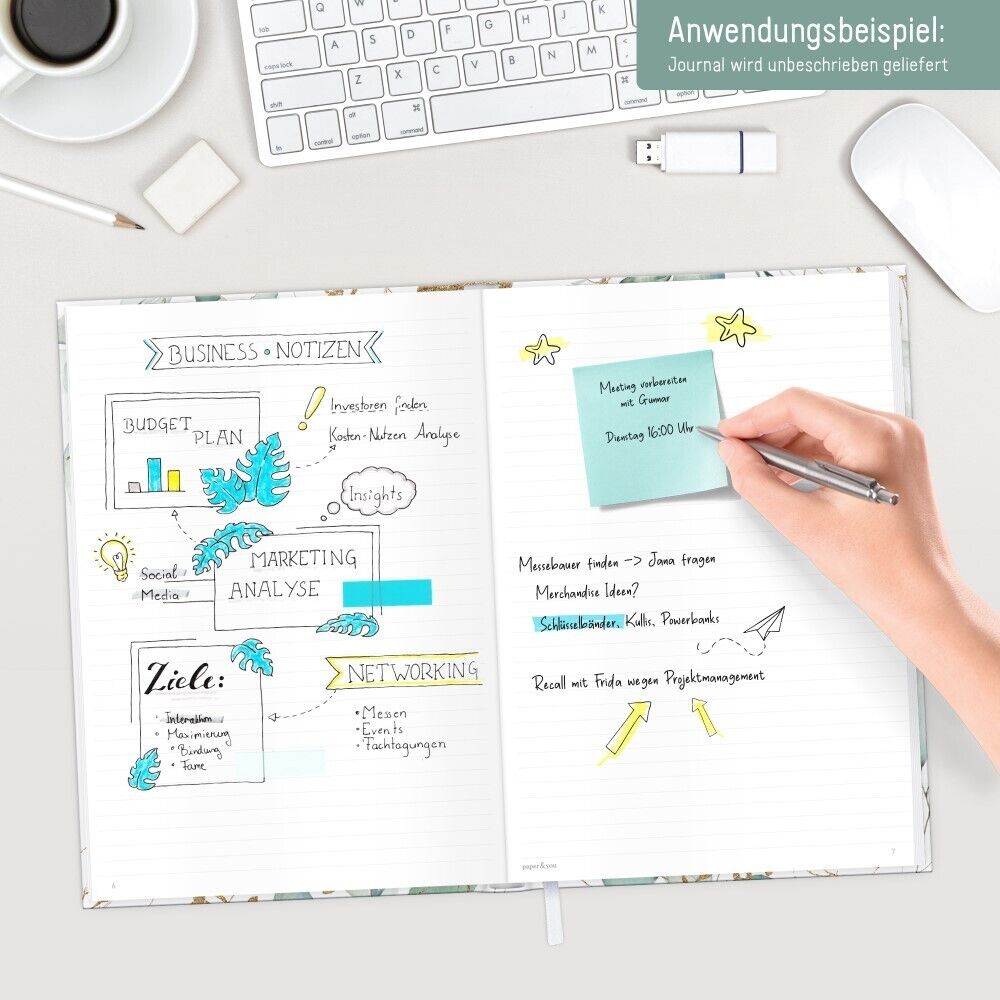 Anwendungsbeispiel:
Journal wird unbeschrieben geliefert
tab
A
S
D
F
G
H
J
K
caps lock
Z
X
C
V
B
N
M
shift
fn
control
alt
option
⌘
command
⌘
command
option
BUSINESS • NOTIZEN
BUDGET
PLAN
Investoren finden
Kosten-Nutzen Analyse
Insights
Social
Media
MARKETING
ANALYSE
Ziele:
Maximierung
• Bindung
• Fame
NETWORKING
• Messen
• Events
• Fachtagungen
6
Meeting vorbereiten
mit Gunnar
Dienstag 16:00 Uhr
Messebauer finden --> Jana fragen
Merchandise Ideen?
Schlüsselbänder, Kullis, Powerbanks
Recall mit Frida wegen Projektmanagement
paper&you
7